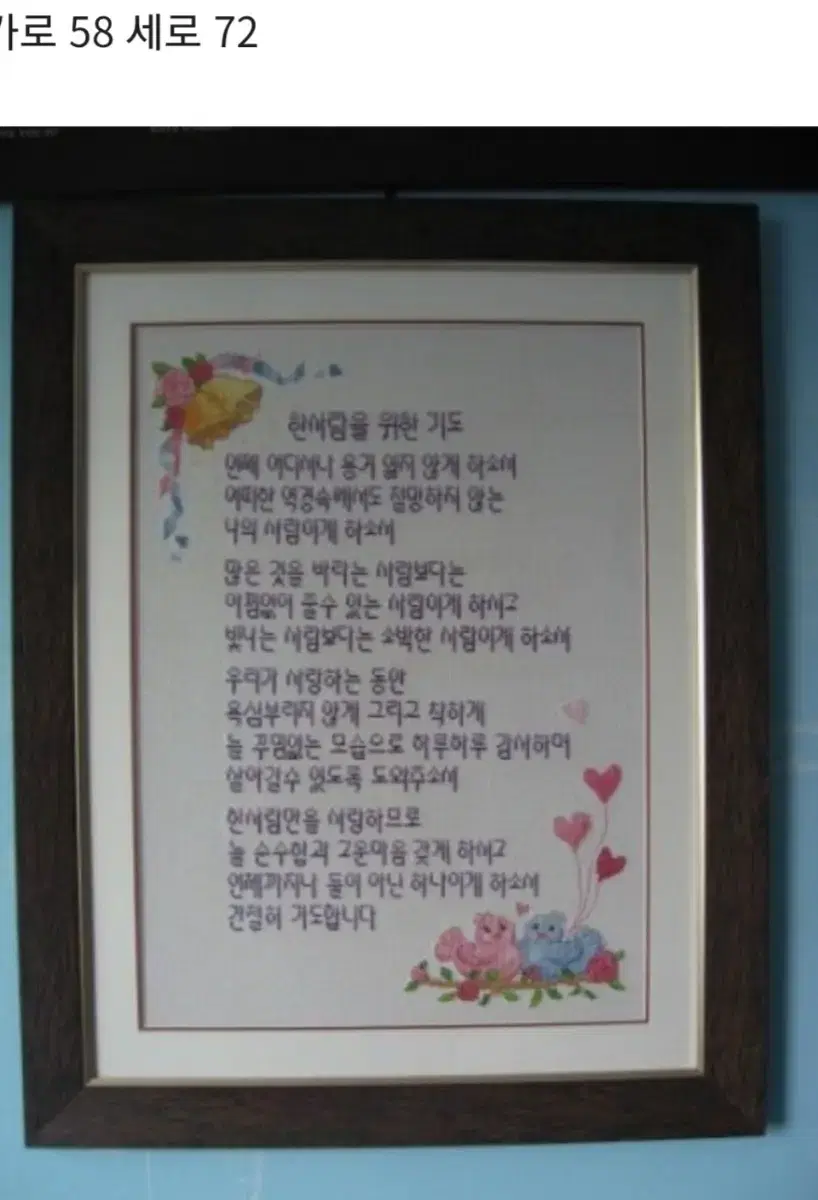 가로 58 세로 72
한사람을 위한 기도
언제 어디서나 용기 잃지 않게 하소서
어떠한 역경속에서도 절망하지 않는
나의 사람이게 하소서
많은 것을 바라는 사람보다는
아낌없이 줄수 있는 사람이게 하시고
빛나는 사람보다는 소박한 사람이게 하소서
우리가 사랑하는 동안
욕심부리지 않게 그리고 착하게
늘 꾸밈없는 모습으로 하루하루 감사하며
살아갈수 있도록 도와주소서
한사람만을 사랑하므로
늘 순수함과 고운마음 갖게 하시고
언제까지나 둘이 아닌 하나이게 하소서
간절히 기도합니다